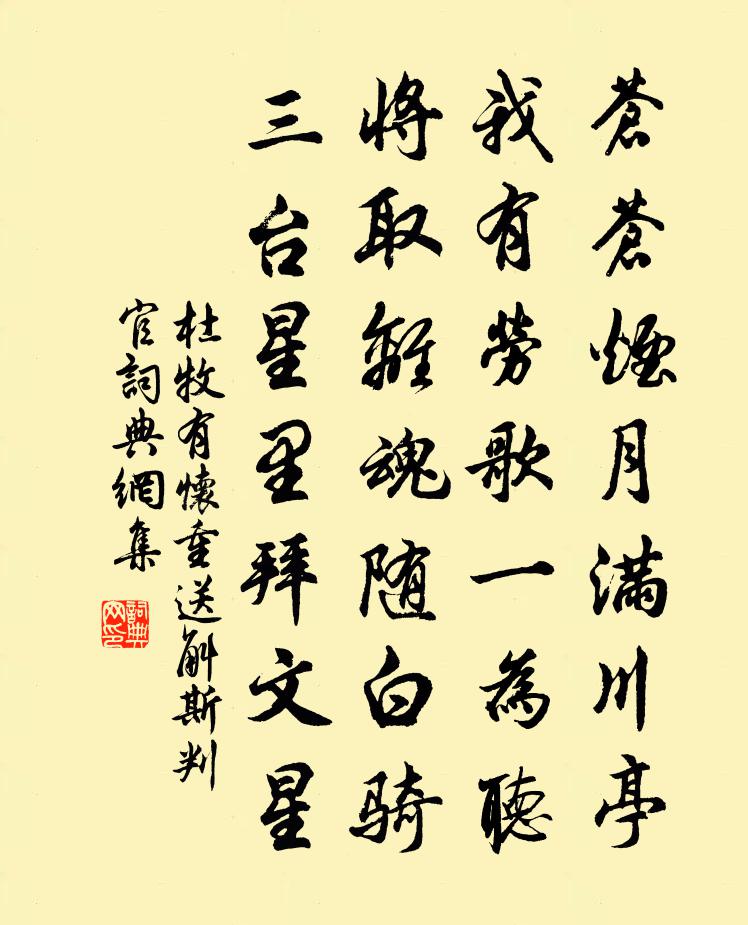 蒼蒼煙月滿川亭
我有勞歌一為聽
將取離魂随白騎
三台星里拜文星
杜牧有懷重送斛斯判
官詞典網集
詞典
网印